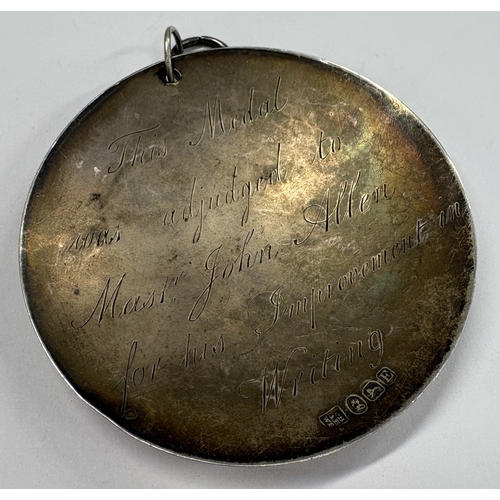 This Medal
was adjudged to
Mastr. John Allen
for his Improvement in
Writing
E